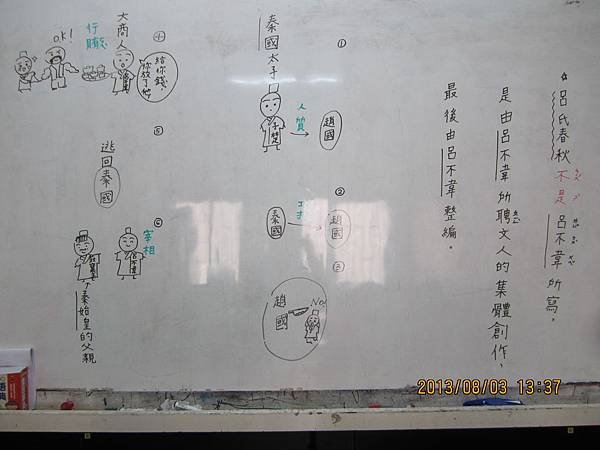 ☆呂氏春秋不是呂不韋所寫。
是由呂不韋所聘文人的集體創作，
最後由呂不韋整編。
①
秦國太子
子楚
人質
趙國
②
秦國
打
趙國
③
趙國
No!
④
大商人
行賄
給你錢，
你放了他
O.K!
⑤
逃回秦國
⑥
宰相
呂不韋
秦始皇的父親
2013/08/03 13:37